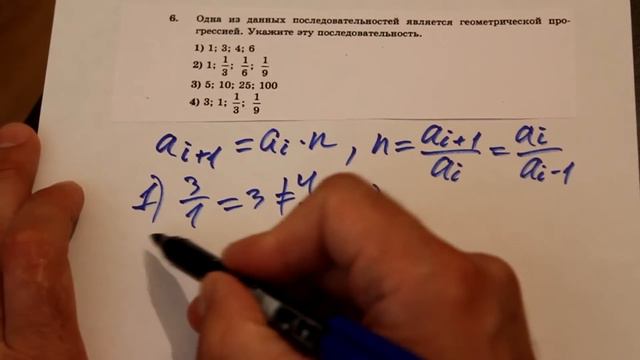 6. Одна из данных последовательностей является геометрической про-
грессией. Укажите эту последовательность.
1) 1; 3; 4; 6
2) 1; 1/3; 1/6; 1/9
3) 5; 10; 25; 100
4) 3; 1; 1/3; 1/9
a_{i+1} = a_i · n, n = a_{i+1}/a_i = a_i/a_{i-1}
1) 3/1 = 3 ≠ 4